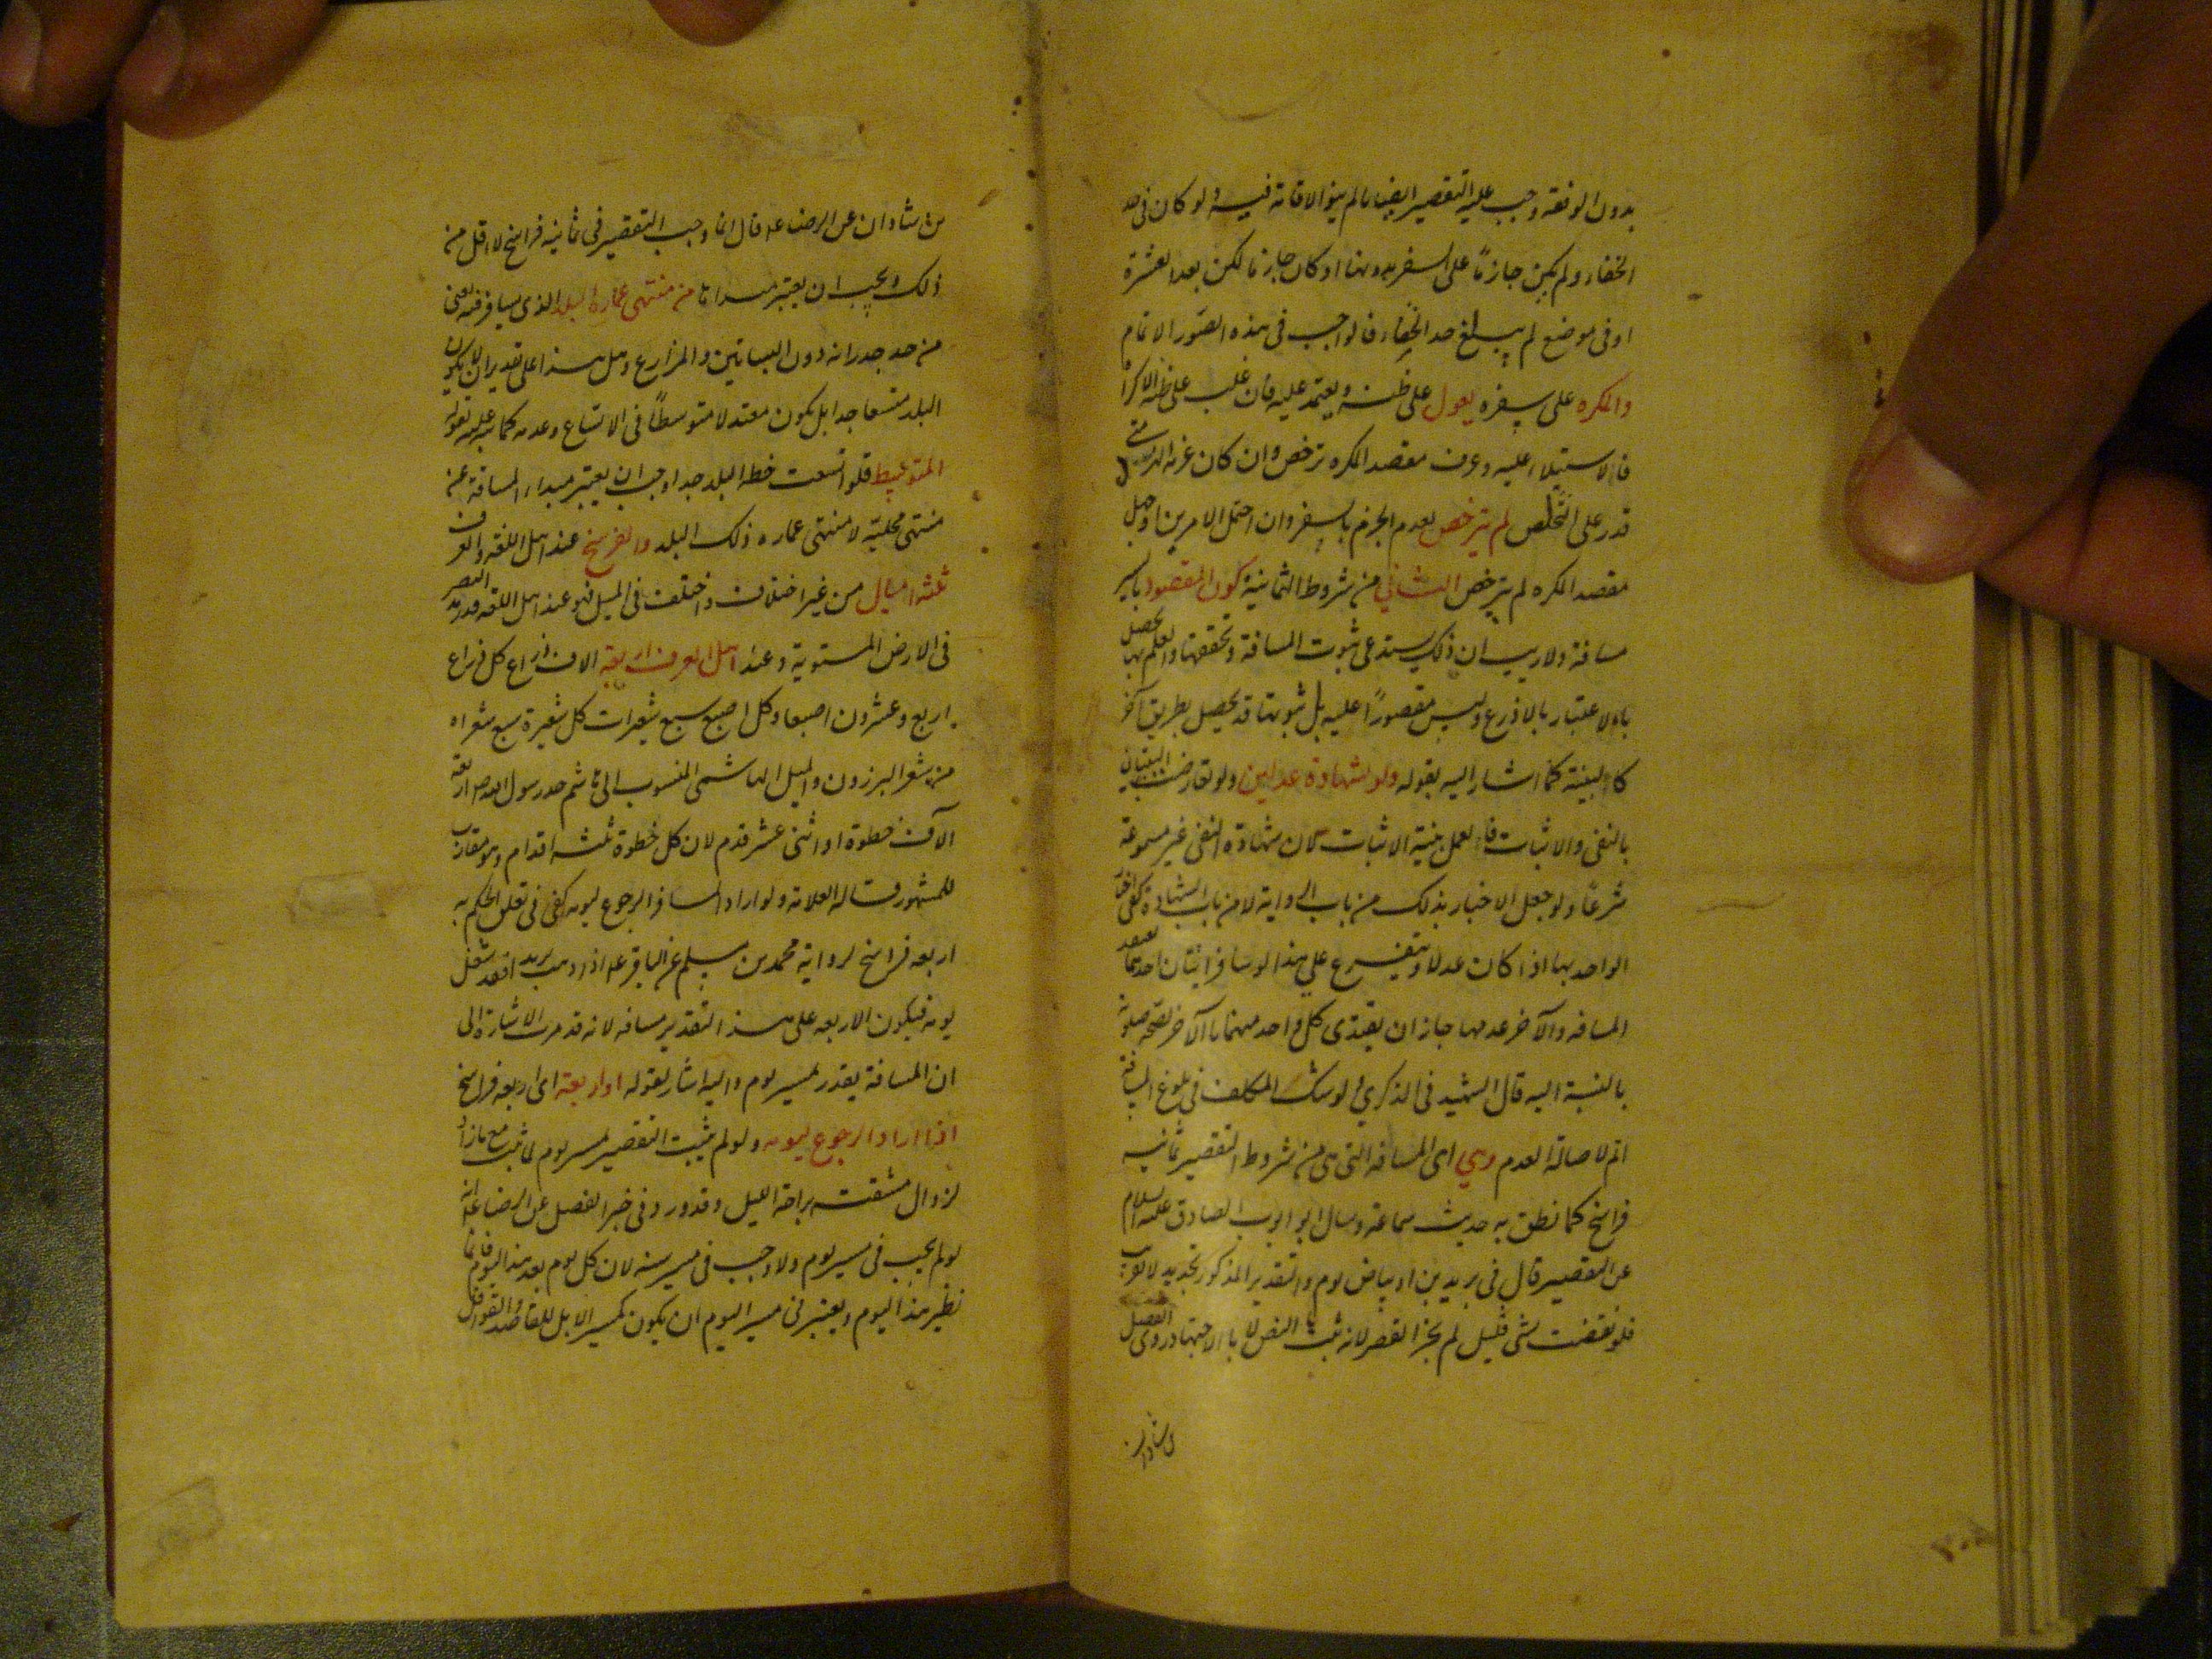 بدون الرفقة وجب عليه التقصير ايضا ما لم ينو الاقامة فيه ولو كان فى حد
الخفاء ولم يكن جازماً على السفر بدونها او كان جازما لكن بعد العشرة
او فى موضع لم يبلغ حد الخفاء فالواجب فى هذه الصور الاتمام
والمكره على سفره يعول على ظنه ويعتمد عليه فان غلب على ظنه الاكراه
فالاستيلاء عليه وعرف مقصد المكره ترخص وان كان عزمه الهرب متى
قدر على التخلص لم يترخص لعدم الجزم بالسفر وان احتمل الامرين او جهل
مقصد المكره لم يترخص الثانى من شروط الثمانية كون المقصود بالسير
مسافة ولا ريب ان ذلك يستدعى ثبوت المسافة وتحققها والعلم بها يحصل
بالاعتبار بالاذرع وليس مقصوراً عليه بل ثبوتها قد يحصل بطريق آخر
كالبينة كما اشار اليه بقوله ولو بشهادة عدلين ولو تعارضت البينتان
بالنفى والاثبات فالعمل ببينة الاثبات لان شهادة النفى غير مسموعة
شرعاً ولو جعل الاخبار بذلك من باب الرواية لا من باب الشهادة كفى
الواحد بها اذا كان عدلا ويتفرع على هذا لو سافر اثنان احدهما يعتقد
المسافه والآخر عدمها جاز ان يقتدى كل واحد منهما بالآخر لصحة صلوته
بالنسبة اليه قال الشهيد فى الذكرى ولو شك المكلف فى بلوغ المسافة
اتم لاصالة العدم وهي اى المسافة التى هى من شروط التقصير ثمانية
فراسخ كما نطق به حديث سماعة وسال ابو ايوب الصادق عليه السلام
عن التقصير قال فى بريدين او بياض يوم والتقدير المذكور تحديد لا تقريب
فلو نقصت بشى قليل لم يجز القصر لانه ثبت بالنص لا بالاجتهاد روى الفضل
بن شاذان
بن شاذان عن الرضا عه قال انما وجب التقصير فى ثمانية فراسخ لا اقل من
ذلك ويجب ان يعتبر مبداها من منتهى عمارة البلد الذى يسافر منه يعنى
من حد جدرانه دون البساتين والمزارع وهل هذا على تقدير ان لا يكون
البلد متسعا جدا بل يكون معتدلا متوسطاً فى الاتساع وعدمه كما نبه عليه بقوله
المتوسط فلو اتسعت خطه البلد جدا وجب ان يعتبر مبداء المسافة من
منتهى محلته لا منتهى عماره ذلك البلد والفرسخ عند اهل اللغة والعرف
ثلثة اميال من غير اختلاف واختلف فى الميل فهو عند اهل اللغه قدر مد البصر
فى الارض المستوية وعند اهل العرف اربعة الاف ذراع كل ذراع
اربع وعشرون اصبعا وكل اصبع سبع شعيرات كل شعيرة سبع شعرات
من شعر البرذون والميل الهاشمى المنسوب الى هاشم جد رسول الله ص اربعة
الآف خطوة او اثنى عشر قدم لان كل خطوة ثلثه اقدام وهو مقارب
للمشهور قاله العلامة ولو اراد المسافر الرجوع ليومه كفى فى تعلق الحكم به
اربعه فراسخ لرواية محمد بن مسلم عن الباقر عه اذا ذهب بريدا فقد شغل
يومه فيكون الاربعه على هذا التقدير مسافه لانه قد مرت الاشارة الى
ان المسافة يقدر بمسير يوم واليه اشار بقوله او اربعة اى اربعه فراسخ
اذا اراد الرجوع ليومه ولو لم يثبت التقصير لمسير يوم لما ثبت مع ما زاد
لزوال مشقته براحة الليل وقد ورد فى خبر الفضل عن الرضا عه انه
لو لم يجب فى مسير يوم ولا وجب فى مسير سنه لان كل يوم بعد هذا اليوم فانما
نظير هذا اليوم ويعتبر فى مسير اليوم ان يكون كمسير الابل للقاصد والقوافل